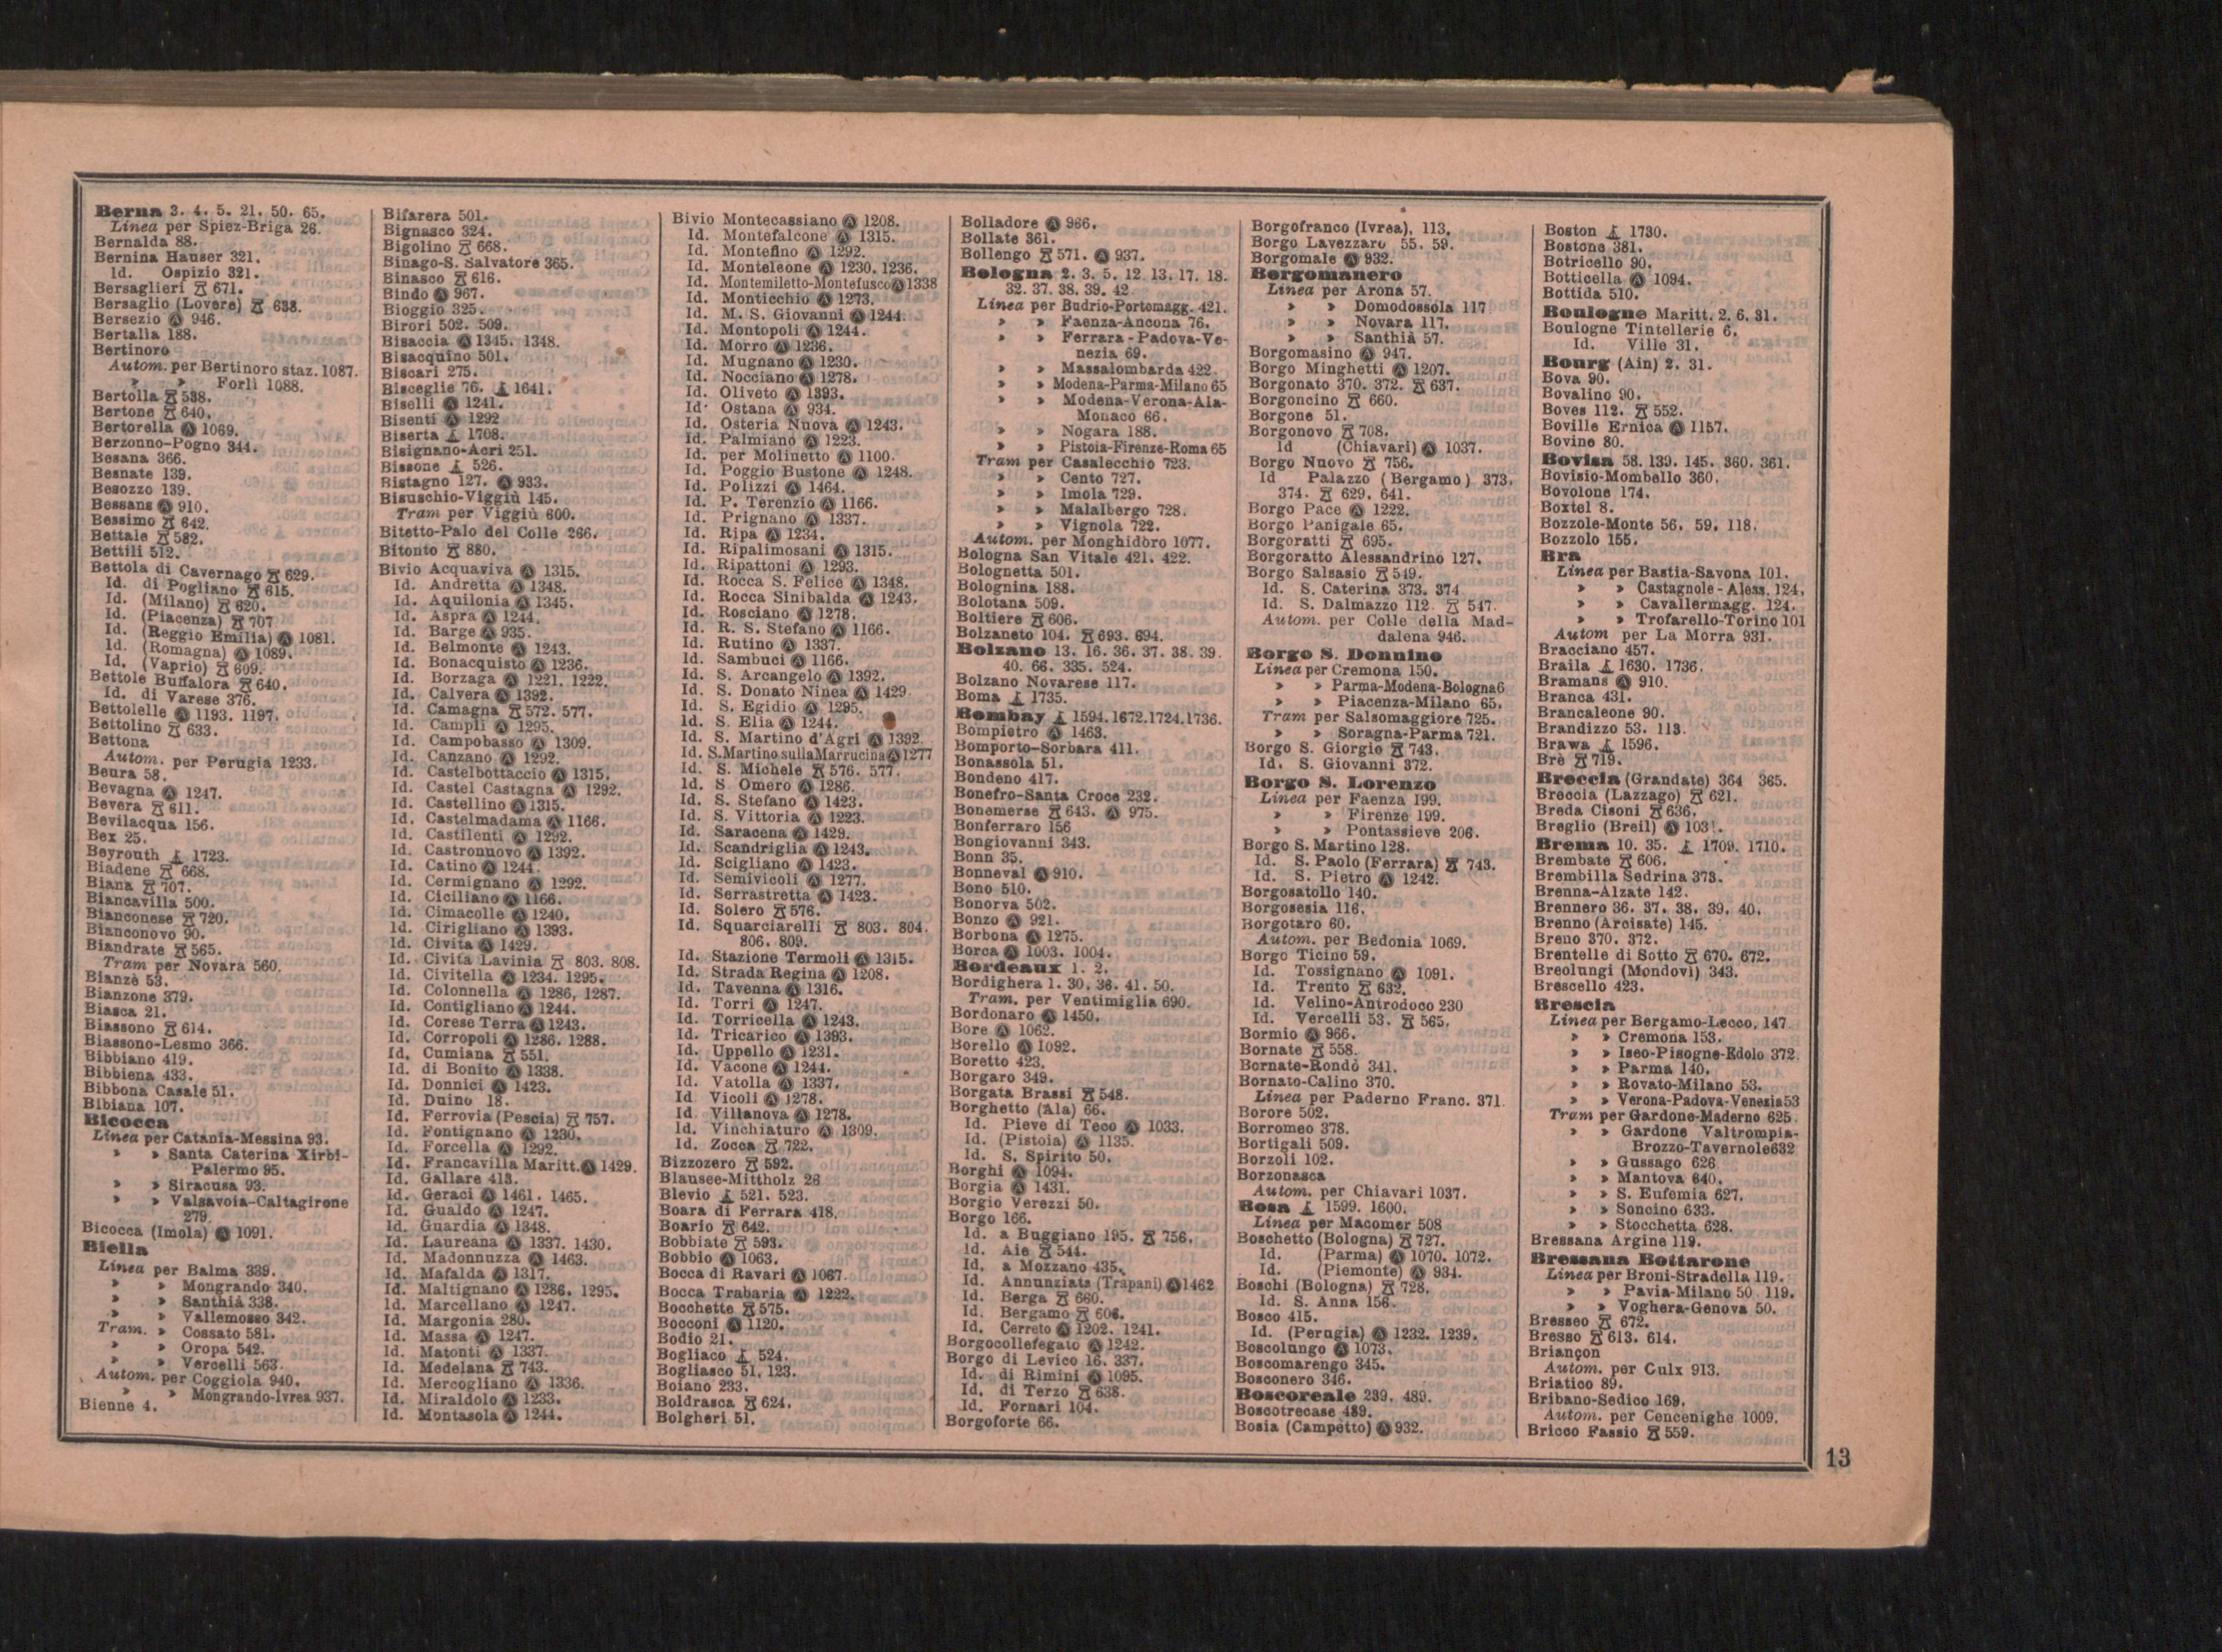 Berna 3. 4. 5. 21. 50. 65.
Linea per Spiez-Briga 26.
Bernalda 88.
Bernina Hauser 321.
Id. Ospizio 321.
Bersaglieri 671.
Bersaglio (Lovere) 638.
Bersezio Ⓐ 946.
Bertalia 188.
Bertinoro
Autom. per Bertinoro staz. 1087.
» » Forlì 1088.
Bertolla 538.
Bertone 640.
Bertorella Ⓐ 1069.
Berzonno-Pogno 344.
Besana 366.
Besnate 139.
Besozzo 139.
Bessans Ⓐ 910.
Bessimo 642.
Bettale 582.
Bettili 512.
Bettola di Cavernago 629.
Id. di Pogliano 615.
Id. (Milano) 620.
Id. (Piacenza) 707
Id. (Reggio Emilia) Ⓐ 1081.
Id. (Romagna) Ⓐ 1089.
Id. (Vaprio) 609.
Bettole Buffalora 640.
Id. di Varese 376.
Bettolelle Ⓐ 1193. 1197.
Bettolino 633.
Bettona
Autom. per Perugia 1233.
Beura 58.
Bevagna Ⓐ 1247.
Bevera 611.
Bevilacqua 156.
Bex 25.
Beyrouth 1723.
Biadene 668.
Biana 707.
Biancavilla 500.
Bianconese 720.
Bianconovo 90.
Biandrate 565.
Tram per Novara 560.
Bianzè 53.
Bianzone 379.
Biasca 21.
Biassono 614.
Biassono-Lesmo 366.
Bibbiano 419.
Bibbiena 433.
Bibbona Casale 51.
Bibiana 107.
Bicocca
Linea per Catania-Messina 93.
» » Santa Caterina Xirbi-
Palermo 95.
» » Siracusa 93.
» » Valsavoia-Caltagirone
279.
Bicocca (Imola) Ⓐ 1091.
Biella
Linea per Balma 339.
» » Mongrando 340.
» » Santhià 338.
» » Vallemosso 342.
Tram. » Cossato 581.
» » Oropa 542.
» » Vercelli 563.
Autom. per Coggiola 940.
» » Mongrando-Ivrea 937.
Bienne 4.
Bifarera 501.
Bignasco 324.
Bigolino 668.
Binago-S. Salvatore 365.
Binasco 616.
Bindo Ⓐ 967.
Bioggio 325.
Birori 502. 509.
Bisaccia Ⓐ 1345. 1348.
Bisacquino 501.
Biscari 275.
Bisceglie 76. 1641.
Biselli Ⓐ 1241.
Bisenti Ⓐ 1292
Biserta 1708.
Bisignano-Acri 251.
Bissone 526.
Bistagno 127. Ⓐ 933.
Bisuschio-Viggiù 145.
Tram per Viggiù 600.
Bitetto-Palo del Colle 266.
Bitonto 880.
Bivio Acquaviva Ⓐ 1315.
Id. Andretta Ⓐ 1348.
Id. Aquilonia Ⓐ 1345.
Id. Aspra Ⓐ 1244.
Id. Barge Ⓐ 935.
Id. Belmonte Ⓐ 1243.
Id. Bonacquisto Ⓐ 1236.
Id. Borzaga Ⓐ 1221. 1222.
Id. Calvera Ⓐ 1392.
Id. Camagna 572. 577.
Id. Campli Ⓐ 1295.
Id. Campobasso Ⓐ 1309.
Id. Canzano Ⓐ 1292.
Id. Castelbottaccio Ⓐ 1315.
Id. Castel Castagna Ⓐ 1292.
Id. Castellino Ⓐ 1315.
Id. Castelmadama Ⓐ 1166.
Id. Castilenti Ⓐ 1292.
Id. Castronuovo Ⓐ 1392.
Id. Catino Ⓐ 1244.
Id. Cermignano Ⓐ 1292.
Id. Ciciliano Ⓐ 1166.
Id. Cimacolle Ⓐ 1240.
Id. Cirigliano Ⓐ 1393.
Id. Civita Ⓐ 1429.
Id. Civita Lavinia 803. 808.
Id. Civitella Ⓐ 1234. 1295.
Id. Colonnella Ⓐ 1286, 1287.
Id. Contigliano Ⓐ 1244.
Id. Corese Terra Ⓐ 1243.
Id. Corropoli Ⓐ 1286. 1288.
Id. Cumiana 551.
Id. di Bonito Ⓐ 1338.
Id. Donnici Ⓐ 1423.
Id. Duino 18.
Id. Ferrovia (Pescia) 757.
Id. Fontignano Ⓐ 1230.
Id. Forcella Ⓐ 1292.
Id. Francavilla Maritt. Ⓐ 1429.
Id. Gallare 413.
Id. Geraci Ⓐ 1461. 1465.
Id. Gualdo Ⓐ 1247.
Id. Guardia Ⓐ 1348.
Id. Laureana Ⓐ 1337. 1430.
Id. Madonnuzza Ⓐ 1463.
Id. Mafalda Ⓐ 1317.
Id. Maltignano Ⓐ 1286. 1295.
Id. Marcellano Ⓐ 1247.
Id. Margonia 280.
Id. Massa Ⓐ 1247.
Id. Matonti Ⓐ 1337.
Id. Medelana 743.
Id. Mercogliano Ⓐ 1336.
Id. Miraldolo Ⓐ 1233.
Id. Montasola Ⓐ 1244.
Bivio Montecassiano Ⓐ 1208.
Id. Montefalcone Ⓐ 1315.
Id. Montefino Ⓐ 1292.
Id. Monteleone Ⓐ 1230. 1236.
Id. Montemiletto-Montefusco Ⓐ 1338
Id. Monticchio Ⓐ 1273.
Id. M. S. Giovanni Ⓐ 1244.
Id. Montopoli Ⓐ 1244.
Id. Morro Ⓐ 1236.
Id. Mugnano Ⓐ 1230.
Id. Nocciano Ⓐ 1278.
Id. Oliveto Ⓐ 1393.
Id. Ostana Ⓐ 934.
Id. Osteria Nuova Ⓐ 1243.
Id. Palmiano Ⓐ 1223.
Id. per Molinetto Ⓐ 1100.
Id. Poggio Bustone Ⓐ 1248.
Id. Polizzi Ⓐ 1464.
Id. P. Terenzio Ⓐ 1166.
Id. Prignano Ⓐ 1337.
Id. Ripa Ⓐ 1234.
Id. Ripalimosani Ⓐ 1315.
Id. Ripattoni Ⓐ 1293.
Id. Rocca S. Felice Ⓐ 1348.
Id. Rocca Sinibalda Ⓐ 1243.
Id. Rosciano Ⓐ 1278.
Id. R. S. Stefano Ⓐ 1166.
Id. Rutino Ⓐ 1337.
Id. Sambuci Ⓐ 1166.
Id. S. Arcangelo Ⓐ 1392.
Id. S. Donato Ninea Ⓐ 1429.
Id. S. Egidio Ⓐ 1295.
Id. S. Elia Ⓐ 1244.
Id. S. Martino d'Agri Ⓐ 1392.
Id. S. Martino sulla Marrucina Ⓐ 1277
Id. S. Michele 576. 577.
Id. S Omero Ⓐ 1286.
Id. S. Stefano Ⓐ 1423.
Id. S. Vittoria Ⓐ 1223.
Id. Saracena Ⓐ 1429.
Id. Scandriglia Ⓐ 1243.
Id. Scigliano Ⓐ 1423.
Id. Semivicoli Ⓐ 1277.
Id. Serrastretta Ⓐ 1423.
Id. Solero 576.
Id. Squarciarelli 803. 804.
806. 809.
Id. Stazione Termoli Ⓐ 1315.
Id. Strada Regina Ⓐ 1208.
Id. Tavenna Ⓐ 1316.
Id. Torri Ⓐ 1247.
Id. Torricella Ⓐ 1243.
Id. Tricarico Ⓐ 1393.
Id. Uppello Ⓐ 1231.
Id. Vacone Ⓐ 1244.
Id. Vatolla Ⓐ 1337.
Id Vicoli Ⓐ 1278.
Id. Villanova Ⓐ 1278.
Id. Vinchiaturo Ⓐ 1309.
Id. Zocca 722.
Bizzozero 592.
Blausee-Mittholz 26
Blevio 521. 523.
Boara di Ferrara 418.
Boario 642.
Bobbiate 593.
Bobbio Ⓐ 1063.
Bocca di Ravari Ⓐ 1067.
Bocca Trabaria Ⓐ 1222.
Bocchette 575.
Bocconi Ⓐ 1120.
Bodio 21.
Bogliaco 524.
Bogliasco 51. 123.
Boiano 233.
Boldrasca 624.
Bolgheri 51.
Bolladore Ⓐ 966.
Bollate 361.
Bollengo 571. Ⓐ 937.
Bologna 2. 3. 5. 12. 13. 17. 18.
32. 37. 38. 39. 42
Linea per Budrio-Portomagg. 421.
» » Faenza-Ancona 76.
» » Ferrara-Padova-Ve-
nezia 69.
» » Massalombarda 422
» » Modena-Parma-Milano 65
» » Modena-Verona-Ala-
Monaco 66.
» » Nogara 188.
» » Pistoia-Firenze-Roma 65
Tram per Casalecchio 723.
» » Cento 727.
» » Imola 729.
» » Malalbergo 728.
» » Vignola 722.
Autom. per Monghidoro 1077.
Bologna San Vitale 421. 422.
Bolognetta 501.
Bolognina 188.
Bolotana 509.
Boltiere 606.
Bolzaneto 104. 693. 694.
Bolzano 13. 16. 36. 37. 38. 39.
40. 66. 335. 524.
Bolzano Novarese 117.
Boma 1735.
Bombay 1594. 1672. 1724. 1736.
Bompietro Ⓐ 1463.
Bomporto-Sorbara 411.
Bonassola 51.
Bondeno 417.
Bonefro-Santa Croce 232.
Bonemerse 643. Ⓐ 975.
Bonferraro 156
Bongiovanni 343.
Bonn 35.
Bonneval Ⓐ 910.
Bono 510.
Bonorva 502.
Bonzo Ⓐ 921.
Borbona Ⓐ 1275.
Borca Ⓐ 1003. 1004.
Bordeaux 1. 2.
Bordighera 1. 30. 36. 41. 50.
Tram. per Ventimiglia 690.
Bordonaro Ⓐ 1450.
Bore Ⓐ 1062.
Borello Ⓐ 1092.
Boretto 423.
Borgaro 349.
Borgata Brassi 548.
Borghetto (Ala) 66.
Id. Pieve di Teco Ⓐ 1033.
Id. (Pistoia) Ⓐ 1135.
Id. S. Spirito 50.
Borghi Ⓐ 1094.
Borgia Ⓐ 1431.
Borgio Verezzi 50.
Borgo 166.
Id. a Buggiano 195. 756.
Id. Aie 544.
Id. a Mozzano 435.
Id. Annunziata (Trapani) Ⓐ 1462
Id. Berga 660.
Id. Bergamo 606.
Id. Cerreto Ⓐ 1202. 1241.
Borgocollefegato Ⓐ 1242.
Borgo di Levico 16. 337.
Id. di Rimini Ⓐ 1095.
Id. di Terzo 638.
Id. Fornari 104.
Borgoforte 66.
Borgofranco (Ivrea). 113.
Borgo Lavezzaro 55. 59.
Borgomale Ⓐ 932.
Borgomanero
Linea per Arona 57.
» » Domodossola 117
» » Novara 117.
» » Santhià 57.
Borgomasino Ⓐ 947.
Borgo Minghetti Ⓐ 1207.
Borgonato 370. 372. 637.
Borgoncino 660.
Borgone 51.
Borgonovo 708.
Id (Chiavari) Ⓐ 1037.
Borgo Nuovo 756.
Id Palazzo (Bergamo) 373.
374. 629. 641.
Borgo Pace Ⓐ 1222.
Borgo Panigale 65.
Borgoratti 695.
Borgoratto Alessandrino 127.
Borgo Salsasio 549.
Id. S. Caterina 373. 374
Id. S. Dalmazzo 112. 547.
Autom. per Colle della Mad-
dalena 946.
Borgo S. Donnino
Linea per Cremona 150.
» » Parma-Modena-Bologna 6
» » Piacenza-Milano 65.
Tram per Salsomaggiore 725.
» » Soragna-Parma 721.
Borgo S. Giorgio 743.
Id. S. Giovanni 372.
Borgo S. Lorenzo
Linea per Faenza 199.
» » Firenze 199.
» » Pontassieve 206.
Borgo S. Martino 128.
Id. S. Paolo (Ferrara) 743.
Id. S. Pietro Ⓐ 1242.
Borgosatollo 140.
Borgosesia 116.
Borgotaro 60.
Autom. per Bedonia 1069.
Borgo Ticino 59.
Id. Tossignano Ⓐ 1091.
Id. Trento 632.
Id. Velino-Antrodoco 230
Id. Vercelli 53. 565.
Bormio Ⓐ 966.
Bornate 558.
Bornate-Rondò 341.
Bornato-Calino 370.
Linea per Paderno Franc. 371.
Borore 502.
Borromeo 378.
Bortigali 509.
Borzoli 102.
Borzonasca
Autom. per Chiavari 1037.
Bosa 1599. 1600.
Linea per Macomer 508
Boschetto (Bologna) 727.
Id. (Parma) Ⓐ 1070. 1072.
Id. (Piemonte) Ⓐ 934.
Boschi (Bologna) 728.
Id. S. Anna 156.
Bosco 415.
Id. (Perugia) Ⓐ 1232. 1239.
Boscolungo Ⓐ 1073.
Boscomarengo 345.
Bosconero 346.
Boscoreale 239. 489.
Boscotrecase 489.
Bosia (Campetto) Ⓐ 932.
Boston 1730.
Bostone 381.
Botricello 90.
Botticella Ⓐ 1094.
Bottida 510.
Boulogne Maritt. 2. 6. 31.
Boulogne Tintellerie 6.
Id. Ville 31.
Bourg (Ain) 2. 31.
Bova 90.
Bovalino 90.
Boves 112. 552.
Boville Ernica Ⓐ 1157.
Bovino 80.
Bovisa 58. 139. 145. 360. 361.
Bovisio-Mombello 360.
Bovolone 174.
Boxtel 8.
Bozzole-Monte 56. 59. 118.
Bozzolo 155.
Bra
Linea per Bastia-Savona 101.
» » Castagnole-Aless. 124.
» » Cavallermagg. 124.
» » Trofarello-Torino 101
Autom per La Morra 931.
Bracciano 457.
Braila 1630. 1736.
Bramans Ⓐ 910.
Branca 431.
Brancaleone 90.
Brandizzo 53. 113.
Brawa 1596.
Brè 719.
Breccia (Grandate) 364 365.
Breccia (Lazzago) 621.
Breda Cisoni 636.
Breglio (Breil) Ⓐ 1031.
Brema 10. 35. 1709. 1710.
Brembate 606.
Brembilla Sedrina 373.
Brenna-Alzate 142.
Brennero 36. 37. 38. 39. 40.
Brenno (Arcisate) 145.
Breno 370. 372.
Brentelle di Sotto 670. 672.
Breolungi (Mondovì) 343.
Brescello 423.
Brescia
Linea per Bergamo-Lecco, 147
» » Cremona 153.
» » Iseo-Pisogne-Edolo 372.
» » Parma 140.
» » Rovato-Milano 53.
» » Verona-Padova-Venezia 53
Tram per Gardone-Maderno 625
» » Gardone Valtrompia-
Brozzo-Tavernole 632
» » Gussago 626
» » Mantova 640.
» » S. Eufemia 627.
» » Soncino 633.
» » Stocchetta 628.
Bressana Argine 119.
Bressana Bottarone
Linea per Broni-Stradella 119.
» » Pavia-Milano 50 119.
» » Voghera-Genova 50.
Bresseo 672.
Bresso 613. 614.
Briançon
Autom. per Culx 913.
Briatico 89.
Bribano-Sedico 169.
Autom. per Cencenighe 1009.
Bricco Fassio 559.
13